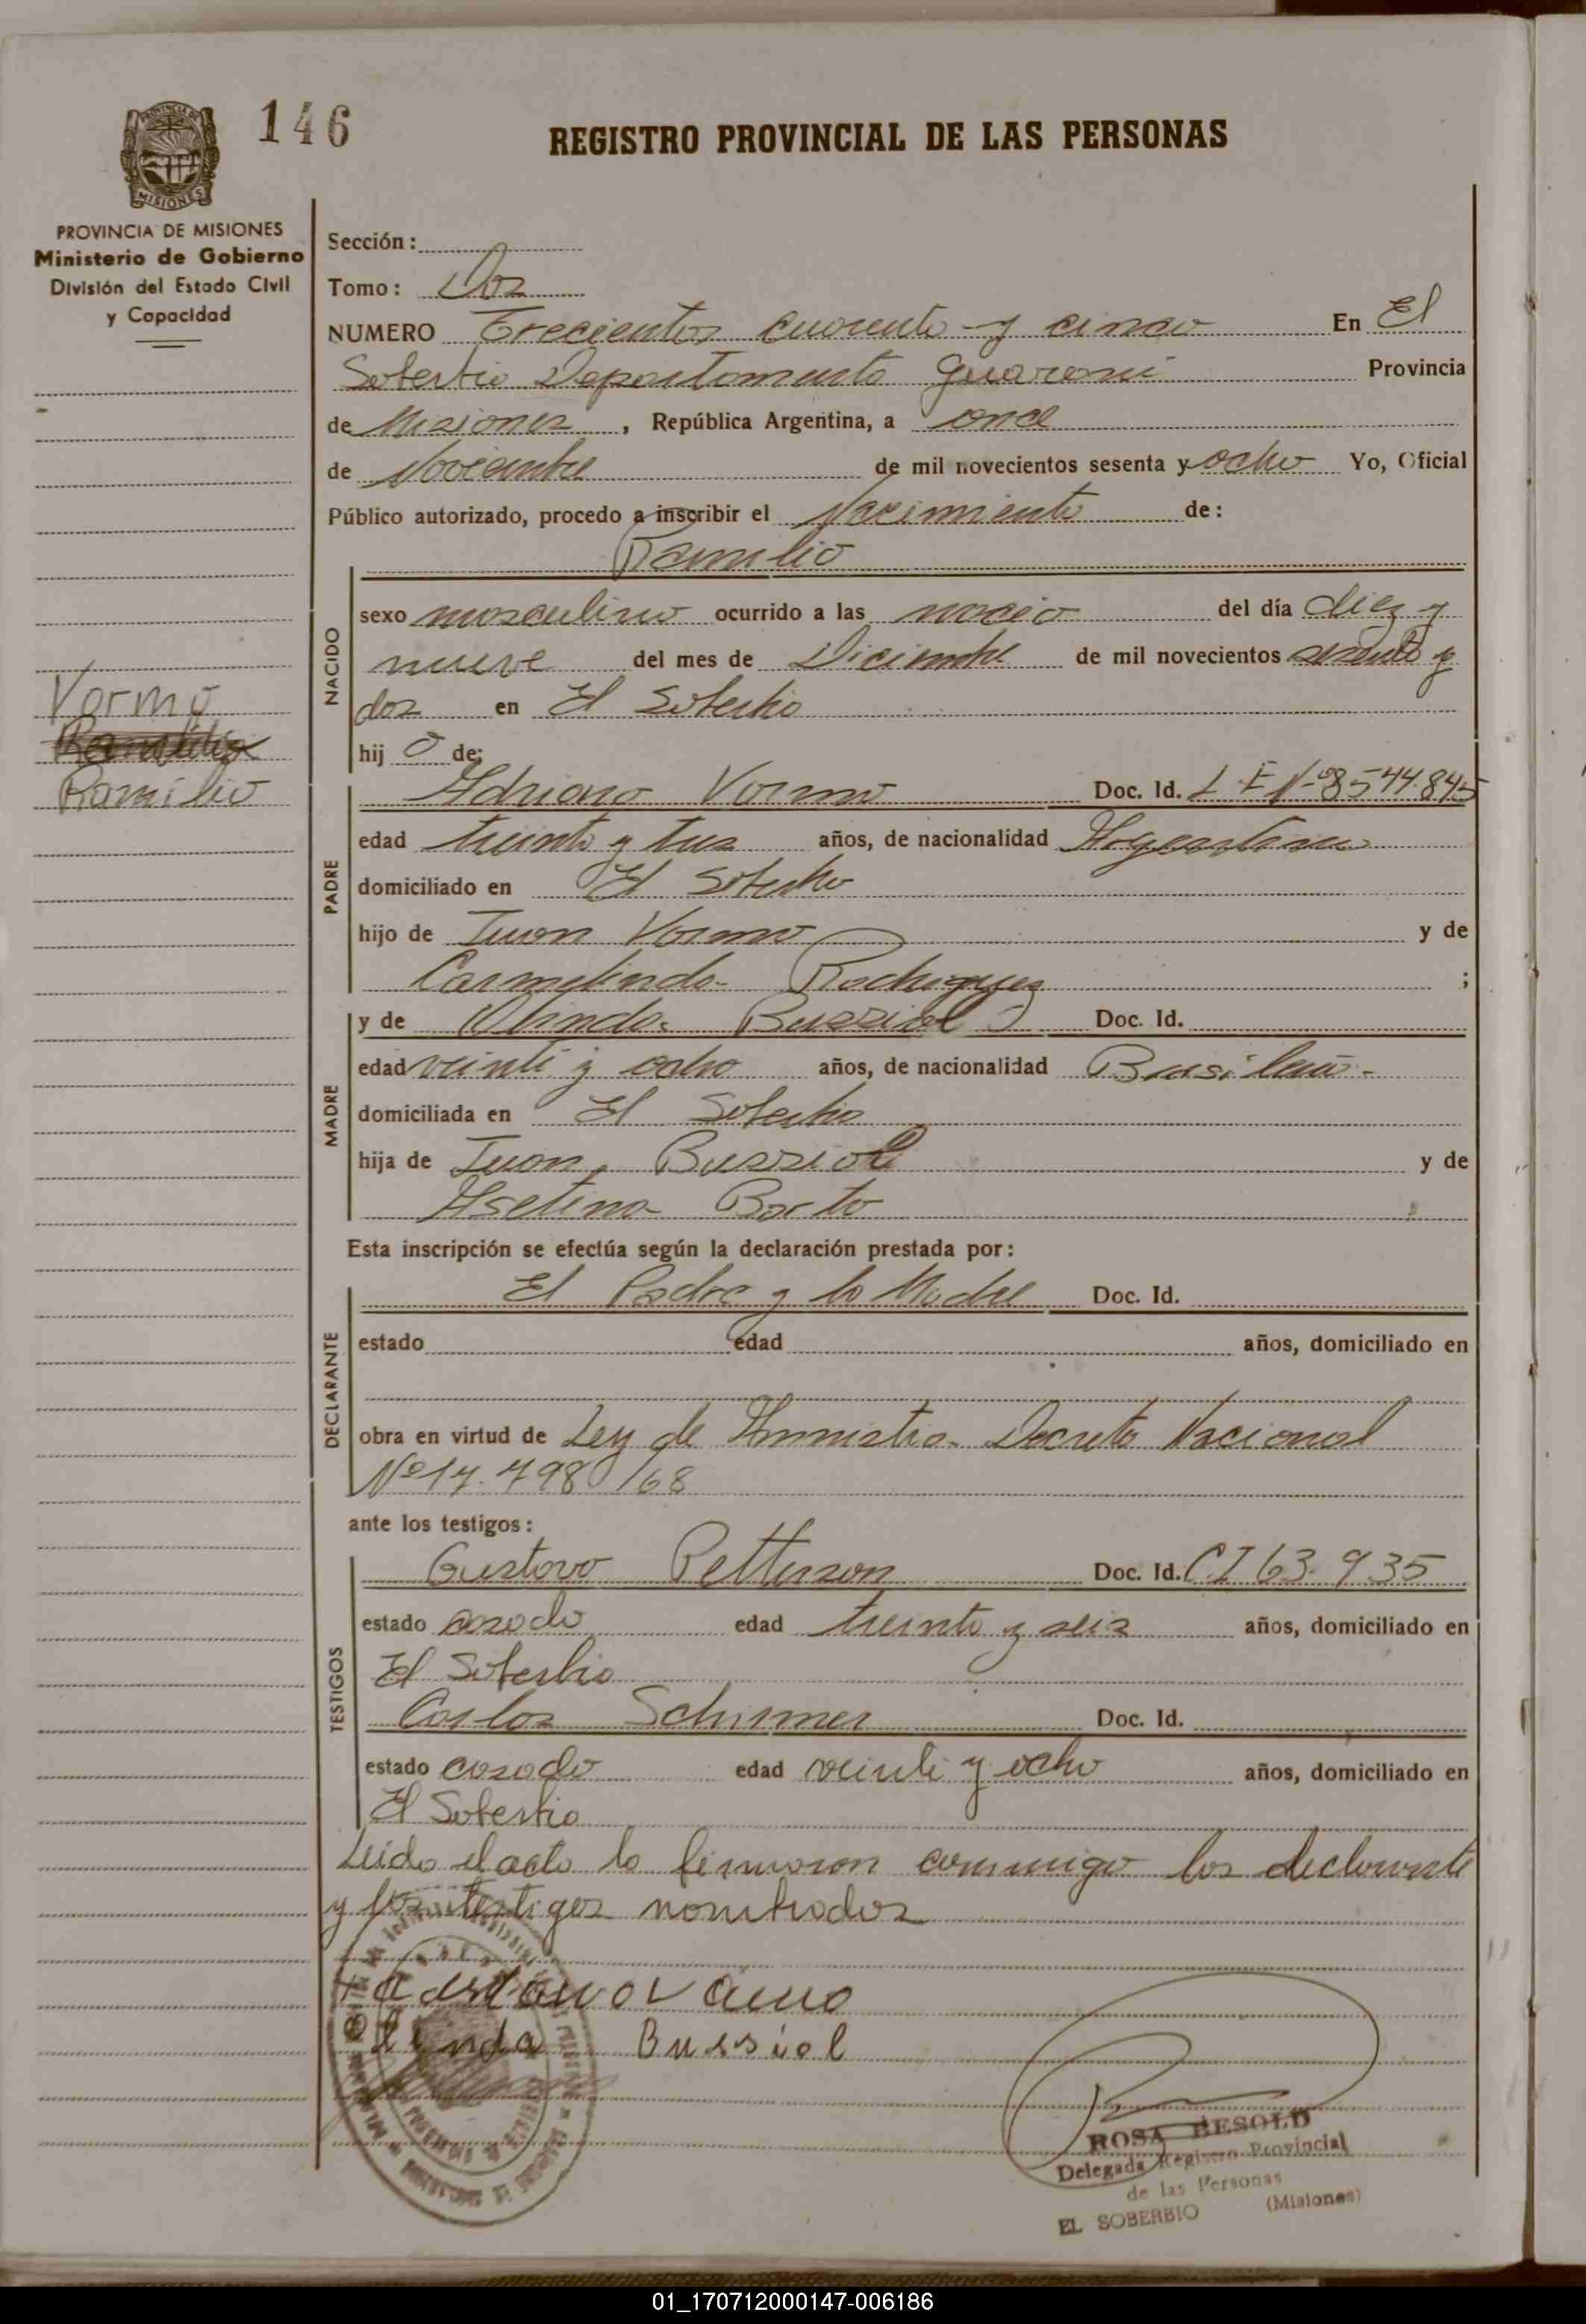 146
REGISTRO PROVINCIAL DE LAS PERSONAS
MISIONES
PROVINCIA DE MISIONES
Ministerio de Gobierno
División del Estado Civil
y Capacidad
Sección:
Tomo: Dos
NUMERO Trecientos cuarenta y cinco En El
Soberbio Departamento Guaraní Provincia
de Misiones, República Argentina, a once
de Noviembre de mil novecientos sesenta y ocho Yo, Oficial
Público autorizado, procedo a inscribir el Nacimiento de:
Ramilio
NACIDO
sexo masculino ocurrido a las del día diez y
nueve del mes de Diciembre de mil novecientos sesenta y
dos en El Soberbio
hijo de:
Vormo
Ramilio
PADRE
Adriano Vormo Doc. Id. L E Nº 8544.845
edad treinta y tres años, de nacionalidad Argentina
domiciliado en El Soberbio
hijo de Juan Vormo y de
Carmelinda Rodriguez ;
MADRE
y de Olinda Bussiol Doc. Id.
edad veinti y ocho años, de nacionalidad Brasileña.-
domiciliada en El Soberbio
hija de Juan Bussiol y de
Aselina
Esta inscripción se efectúa según la declaración prestada por:
DECLARANTE
El Padre y la Madre Doc. Id.
estado edad años, domiciliado en
obra en virtud de Ley de Amnistia Decreto Nacional
Nº 17.798/68
ante los testigos:
TESTIGOS
Gustavo Petterson Doc. Id. C.I 63.935
estado casado edad treinta y seis años, domiciliado en
El Soberbio
Carlos Schirmer Doc. Id.
estado casado edad veinti y ocho años, domiciliado en
El Soberbio
Leida el acta la firmaron conmigo los declarante
y los testigos nombrados
Olinda Bussiol
ROSA BESOLD
Delegada Registro Provincial
de las Personas
EL SOBERBIO (Misiones)
01_170712000147-006186